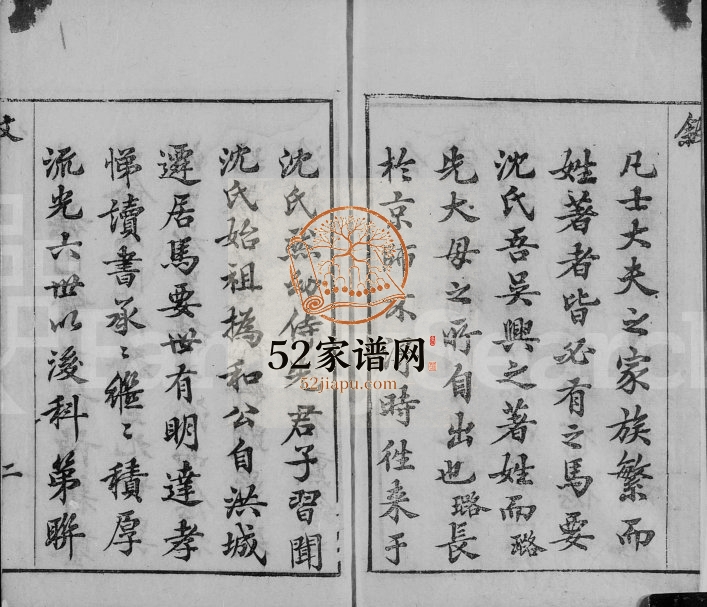 敘
凡士大夫之家族繁而
姓著者皆必有之馬要
沈氏吾吳興之著姓而璐
先大母之所自出也璐長
於京師 時往来于
沈氏 侍 君子習聞
沈氏始祖撝和公自洪城
遷居馬要世有明達孝
悌讀書承〻繼〻積厚
流光六世以後科第聯
文
二
52家谱网
52jiapu.com
FamilySearch